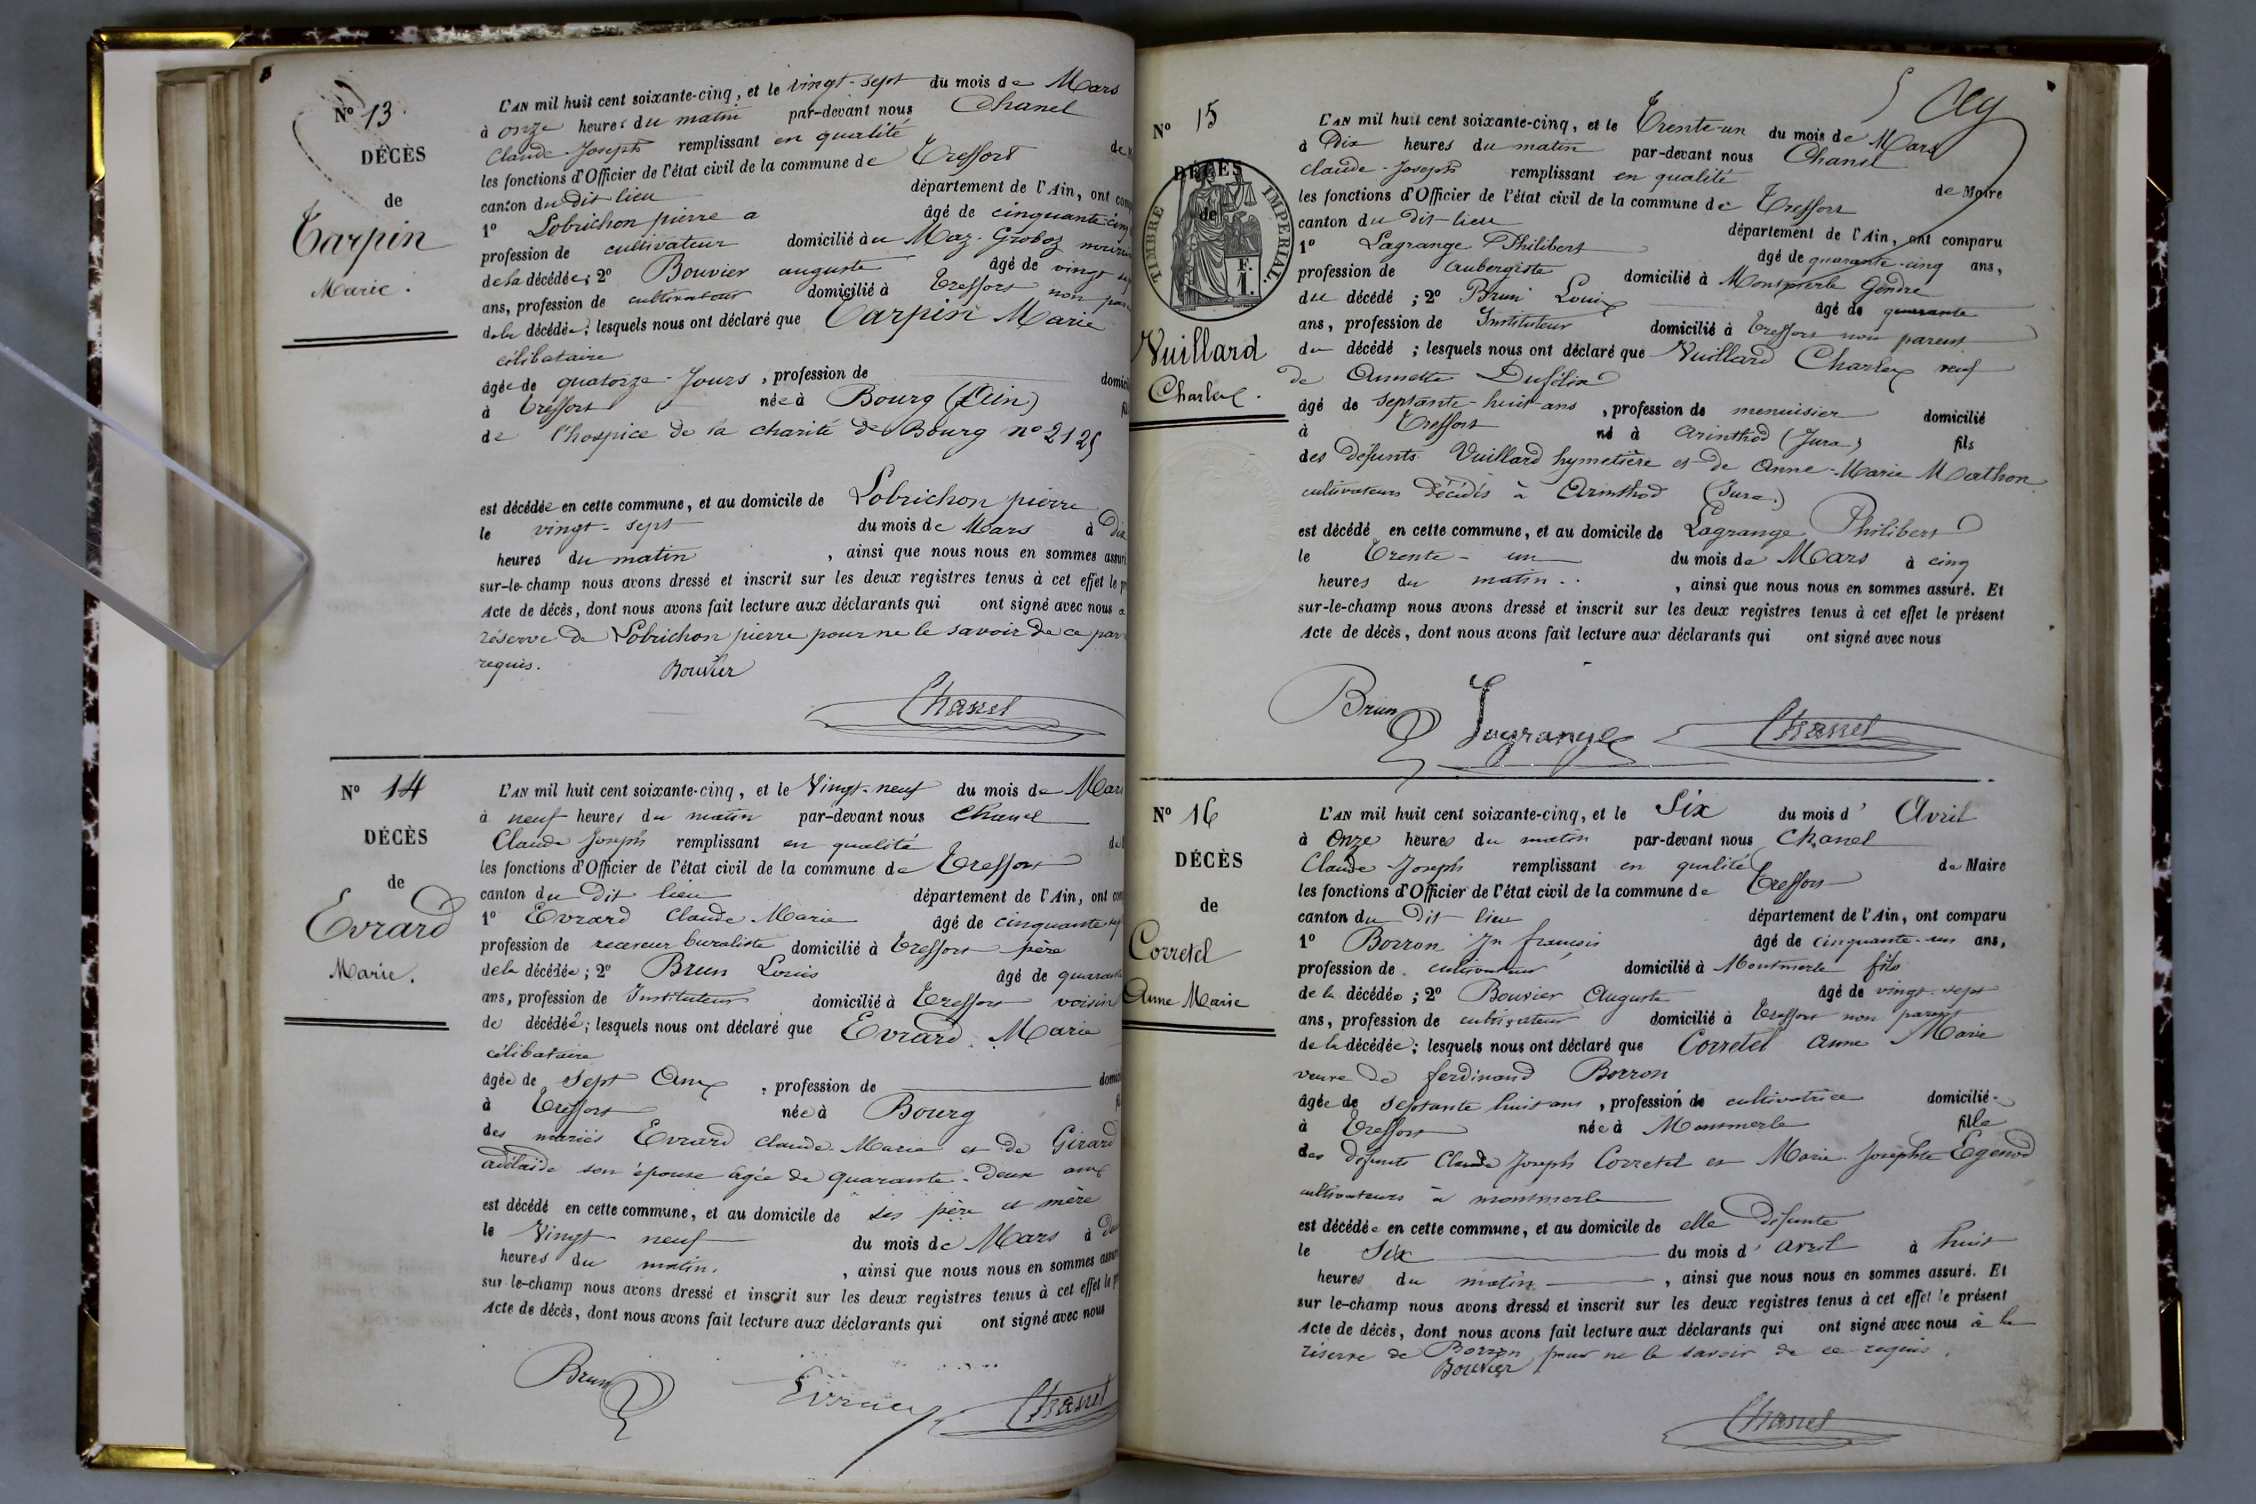 N° 13.
DÉCÈS
de
Carpin
Marie.
L'AN mil huit cent soixante-cinq, et le vingt-sept du mois de Mars
à onze heures du matin par-devant nous Chanel
Claude-Joseph remplissant en qualité de
les fonctions d'Officier de l'état civil de la commune de Treffort
canton du Dit lieu département de l'Ain, ont
1° Lobrichon pierre a âgé de cinquante
profession de cultivateur domicilié au
de la décédée; 2° Bouvier auguste âgé de vingt
ans, profession de cultivateur domicilié à Treffort non
de la décédée; lesquels nous ont déclaré que Carpin Marie
célibataire
âgée de quatorze Jours, profession de
à Treffort née à Bourg (Ain)
de l'hospice de la charité de Bourg n° 2125
est décédée en cette commune, et au domicile de Lobrichon pierre
le vingt-sept du mois de Mars à Dix
heures du matin, ainsi que nous nous en sommes
sur-le-champ nous avons dressé et inscrit sur les deux registres tenus à cet effet le
Acte de décès, dont nous avons fait lecture aux déclarants qui ont signé avec nous
réserve de Lobrichon pierre pour ne le savoir de ce
requis.
Bouvier
Chanel
N° 14
DÉCÈS
de
Evrard
Marie.
L'AN mil huit cent soixante-cinq, et le Vingt-neuf du mois de Mars
à neuf heures du matin par-devant nous Chanel
Claude Joseph remplissant en qualité
les fonctions d'Officier de l'état civil de la commune de Treffort
canton du Dit lieu département de l'Ain, ont
1° Evrard Claude Marie âgé de cinquante
profession de receveur buraliste domicilié à Treffort père
de la décédée; 2° Brun Louis âgé de quarante
ans, profession de Instituteur domicilié à Treffort voisin
de décédée; lesquels nous ont déclaré que Evrard Marie
célibataire
âgée de sept Ans, profession de
à Treffort née à Bourg
des mariés Evrard Claude-Marie et de Girard
adélaïde son épouse âgée de quarante-Deux ans
est décédé en cette commune, et au domicile de ses père et mère
le Vingt-neuf du mois de Mars à
heures du matin, ainsi que nous nous en sommes
sur-le-champ nous avons dressé et inscrit sur les deux registres tenus à cet effet le
Acte de décès, dont nous avons fait lecture aux déclarants qui ont signé avec nous
Brun Evrard Chanel
N° 15
DÉCÈS
de
TIMBRE IMPÉRIAL.
Vuillard
Charles.
L'AN mil huit cent soixante-cinq, et le Trente-un du mois de Mars
à Dix heures du matin par-devant nous Chanel
Claude-Joseph remplissant en qualité de Maire
les fonctions d'Officier de l'état civil de la commune de Treffort
canton du Dit-lieu département de l'Ain, ont comparu
1° Lagrange Philibert âgé de quarante-cinq ans,
profession de aubergiste domicilié à Montmerle Gendre
du décédé; 2° Brun Louis âgé de quarante
ans, profession de Instituteur domicilié à Treffort non parent
du décédé; lesquels nous ont déclaré que Vuillard Charles veuf
de Annette Dufélix
âgé de septante-huit ans, profession de menuisier domicilié
à Treffort né à Arinthod (Jura) fils
des défunts Vuillard hymetière et de Anne-Marie Mathon
cultivateurs Décédés à Arinthod (Jura)
est décédé en cette commune, et au domicile de Lagrange Philibert
le Trente-un du mois de Mars à cinq
heures du matin, ainsi que nous nous en sommes assuré. Et
sur-le-champ nous avons dressé et inscrit sur les deux registres tenus à cet effet le présent
Acte de décès, dont nous avons fait lecture aux déclarants qui ont signé avec nous
Brun Lagrange Chanel
N° 16
DÉCÈS
de
Corretel
Anne Marie
L'AN mil huit cent soixante-cinq, et le Six du mois d'Avril
à Onze heures du matin par-devant nous Chanel
Claude Joseph remplissant en qualité de Maire
les fonctions d'Officier de l'état civil de la commune de Treffort
canton du Dit-lieu département de l'Ain, ont comparu
1° Borron Jn françois âgé de cinquante-un ans,
profession de cultivateur domicilié à Montmerle fils
de la décédée; 2° Bouvier Auguste âgé de vingt-sept
ans, profession de cultivateur domicilié à Treffort non parent
de la décédée; lesquels nous ont déclaré que Corretel Anne Marie
veuve de ferdinand Borron
âgée de septante huit ans, profession de cultivatrice domiciliée
à Treffort née à Montmerle fille
des défunts Claude Joseph Corretel et Marie Josephte Egenod
cultivateurs à montmerle
est décédée en cette commune, et au domicile de elle défunte
le Six du mois d'avril à huit
heures du matin, ainsi que nous nous en sommes assuré. Et
sur le-champ nous avons dressé et inscrit sur les deux registres tenus à cet effet le présent
Acte de décès, dont nous avons fait lecture aux déclarants qui ont signé avec nous à la
réserve de Borron pour ne le savoir de ce requis.
Bouvier
Chanel